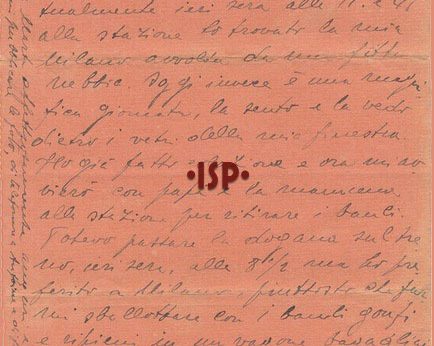 tualmente ieri sera alle 11. e 45
alla stazione ho trovato la mia
Milano avvolta da una fitta
nebbia. Oggi invece è una magni
fica giornata, la sento e la vedo
dietro i vetri della mia finestra.
Ho già fatto e ora mi av
vierò con papà e la mamma
alla stazione per ritirare i bauli.
Potevo passare la dogana sul tre
no, ieri sera, alle 8 1/2 ma ho pre
ferito a Milano, piuttosto che far
mi sballottare con i bauli gonfi
e ripieni in un vagone bagagliai
·ISP·